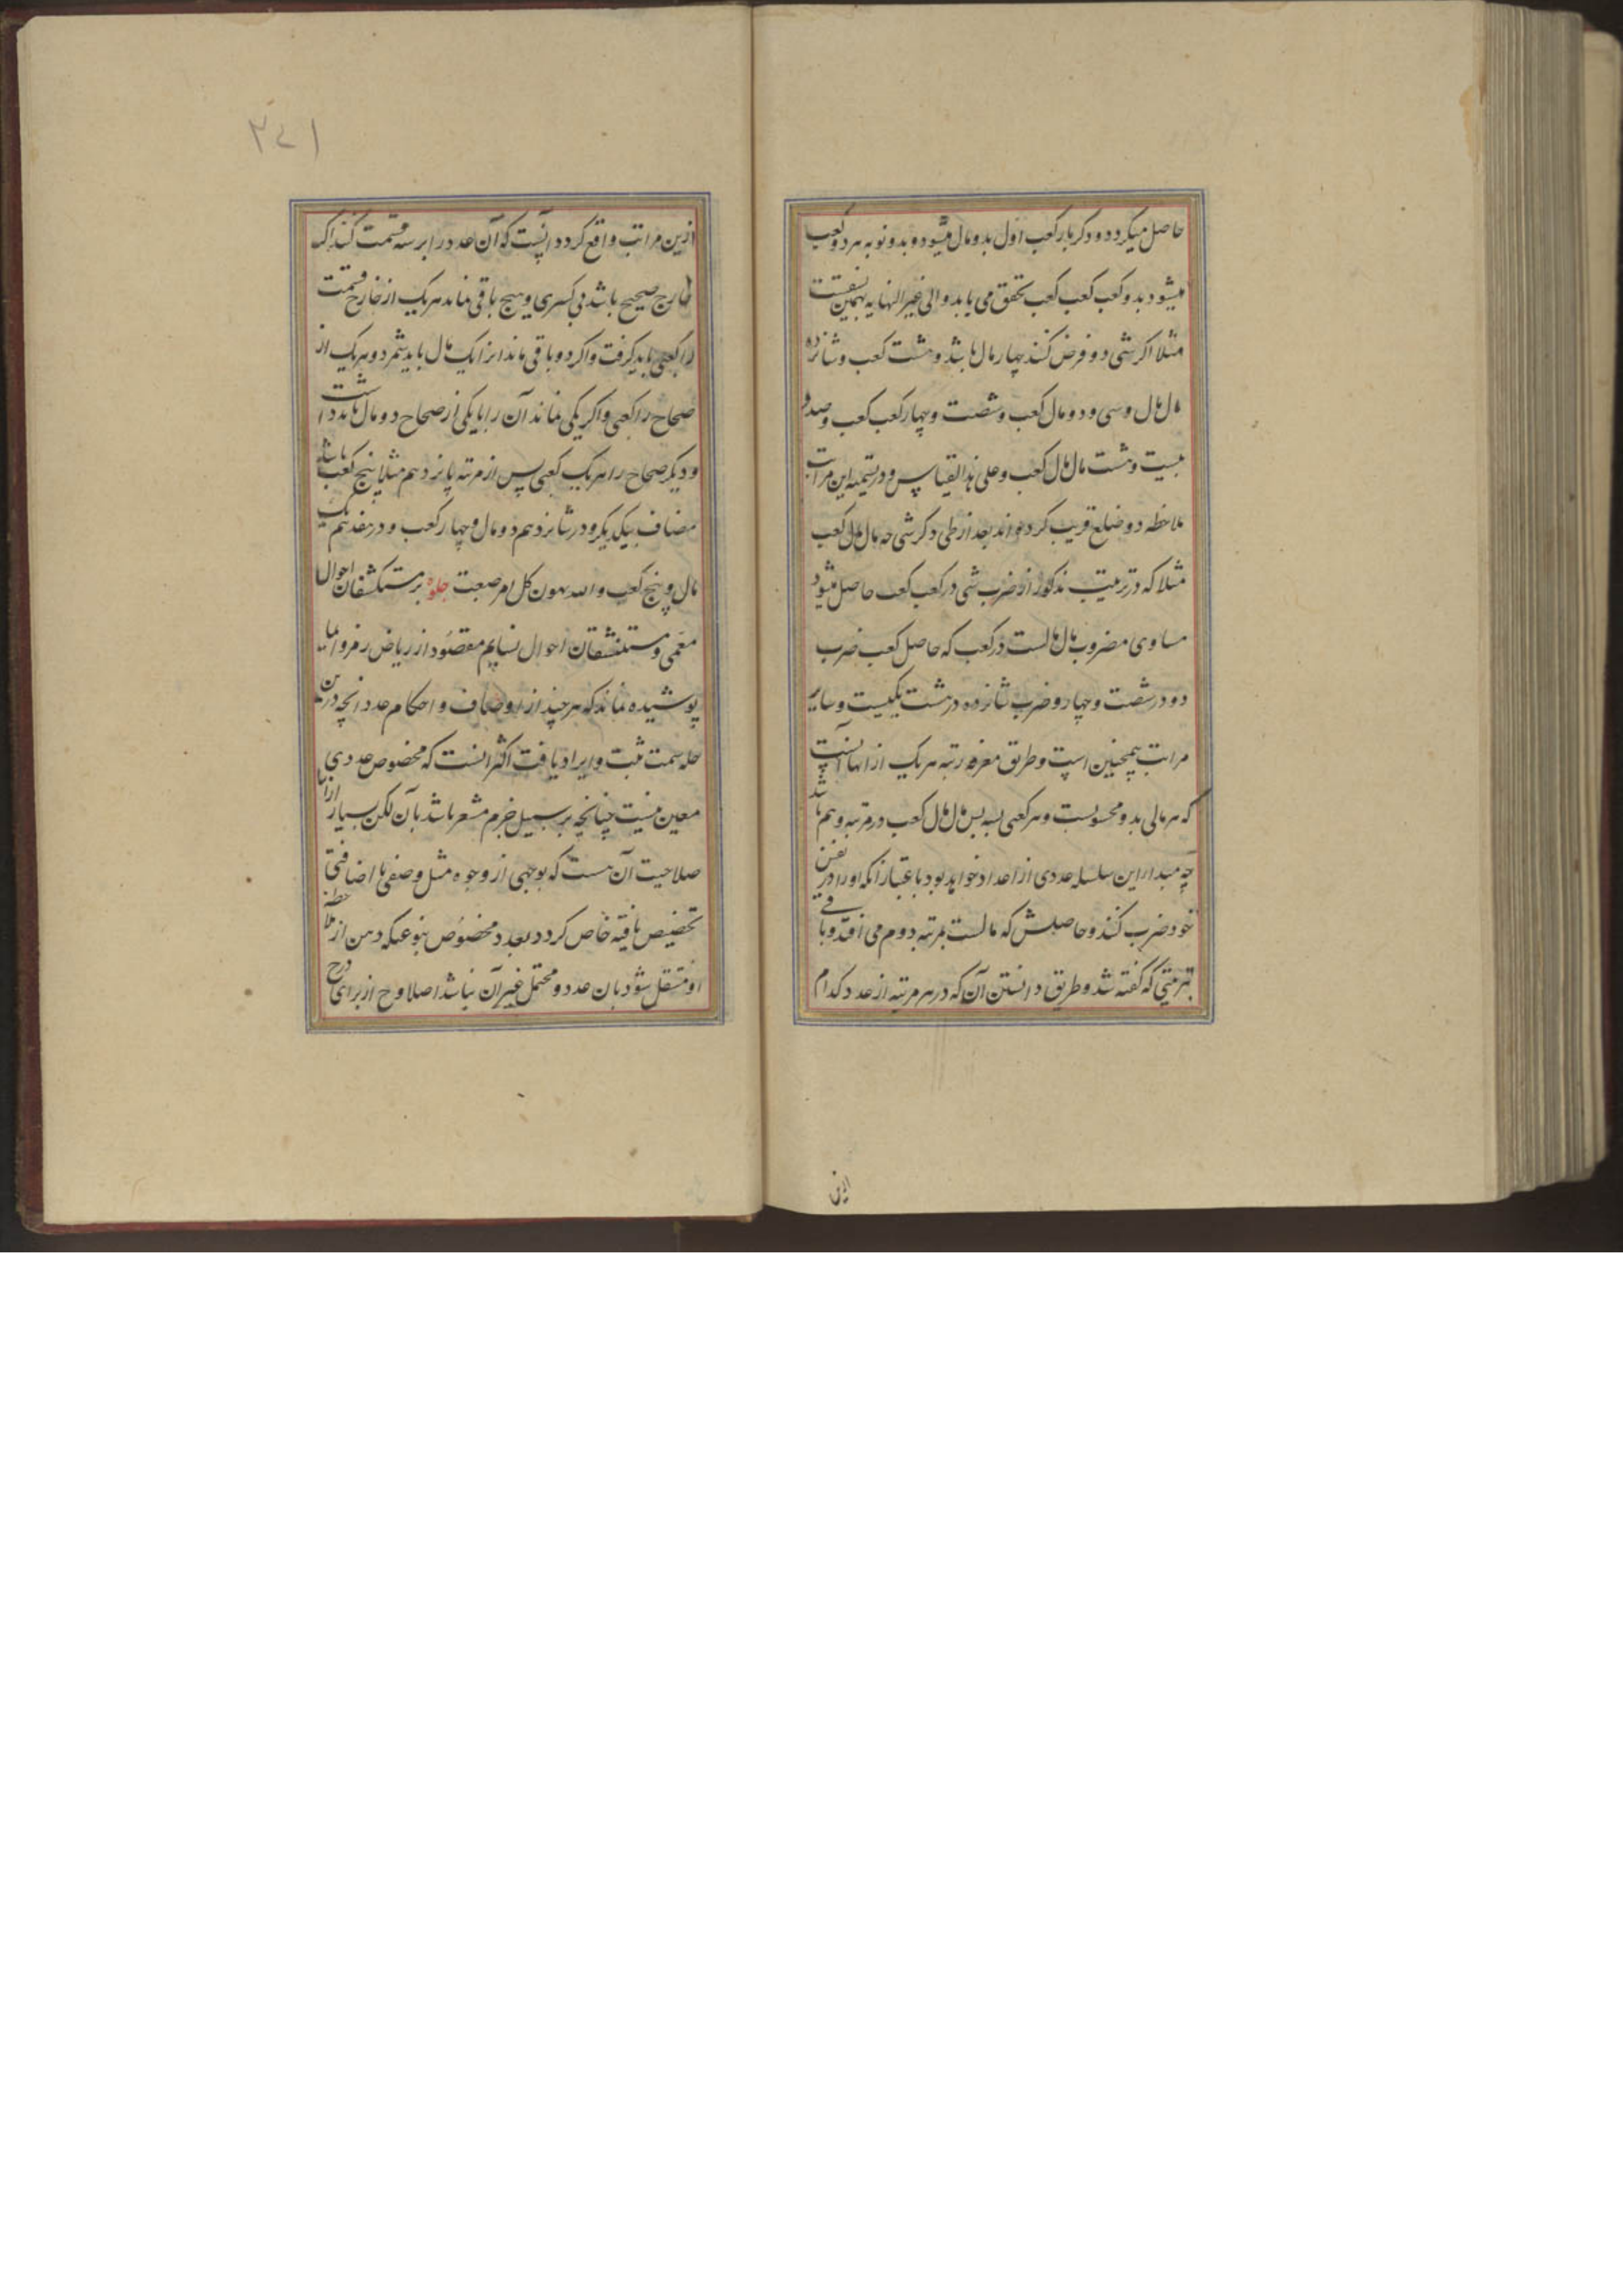 حاصل میکردد و دکر بار کعب اول بدو مال میشود و بدو نوبه هر دو کعب
میشود بدو کعب کعب کعب تحقق می یابد و الی غیر النهایه بهمین نسقست
مثلا اکر شی دو فرض کنند چهار مال باشد و هشت کعب و شانزده
مال مال و سی و دو مال کعب و شصت و چهار کعب کعب و صد و
بیست و هشت مال مال کعب و علی هذا القیاس و در تسمیه این مراتب
ملاحظه دو ضلع قریب کرده اند بعد از طی ذکر شی چه مال مال کعب
مثلا که در ترتیب مذکور از ضرب شی در کعب کعب حاصل میشود
مساوی مضروب مال مالست در کعب که حاصل کعب ضرب
دو در شصت و چهار و ضرب شانزده در هشت یکیست و سایر
مراتب همچنین است و طریق معرفه رتبه هر یک از انها آنست
که هر مالی بدو محسوبست و هر کعبی بسه پس مال مال کعب در مرتبه باشد
چه مبدا این سلسله عددی از اعداد خواهد بود باعتبار انکه او را در نفس
خود ضرب کنند و حاصلش که مالست بمرتبه دوم می افتد و باقی
بترتیبی که کفته شد و طریق دانستن آن که در هر مرتبه از عدد کدام
ازین مراتب واقع کردد آنست که آن عدد را بر سه قسمت کنند اکر
خارج صحیح باشد بی کسری و هیچ باقی نماند هر یک از خارج قسمت
را کعبی باید کرفت و اکر دو باقی ماند انرا یک مال باید شمرد و هر یک از
صحاح را کعبی و اکر یکی بماند آن را با یکی از صحاح دو مال باید داشت
و دیکر صحاح را هر یک کعبی پس از مرتبه پانزدهم مثلا پنج کعب باشد
مضاف بیکدیکر و در شانزدهم دو مال و چهار کعب و در هفدهم یک
مال و پنج کعب و الله یهون کل امر صعبت جلوه بر مستکشفان احوال
معمی و مستنشقان احوال نسایم مقصود از ریاض رمز و ایما
پوشیده نماند که هر چند از اوصاف و احکام عدد انچه درین
حله سمت ثبت و ایراد یافت اکثر انست که مخصوص عددی
معین نیست چنانچه بر سبیل جزم مشعر باشد بآن لکن بسیار ازانها
صلاحیت آن هست که بوجهی از وجوه مثل وصفی یا اضافتی
تخصیص یافته خاص کردد بعدد مخصوص بنوعیکه ذهن از ملاحظه
او منتقل شود بان عدد و محتمل غیر آن نباشد اصلا و ح از برای درج
۲۷۱